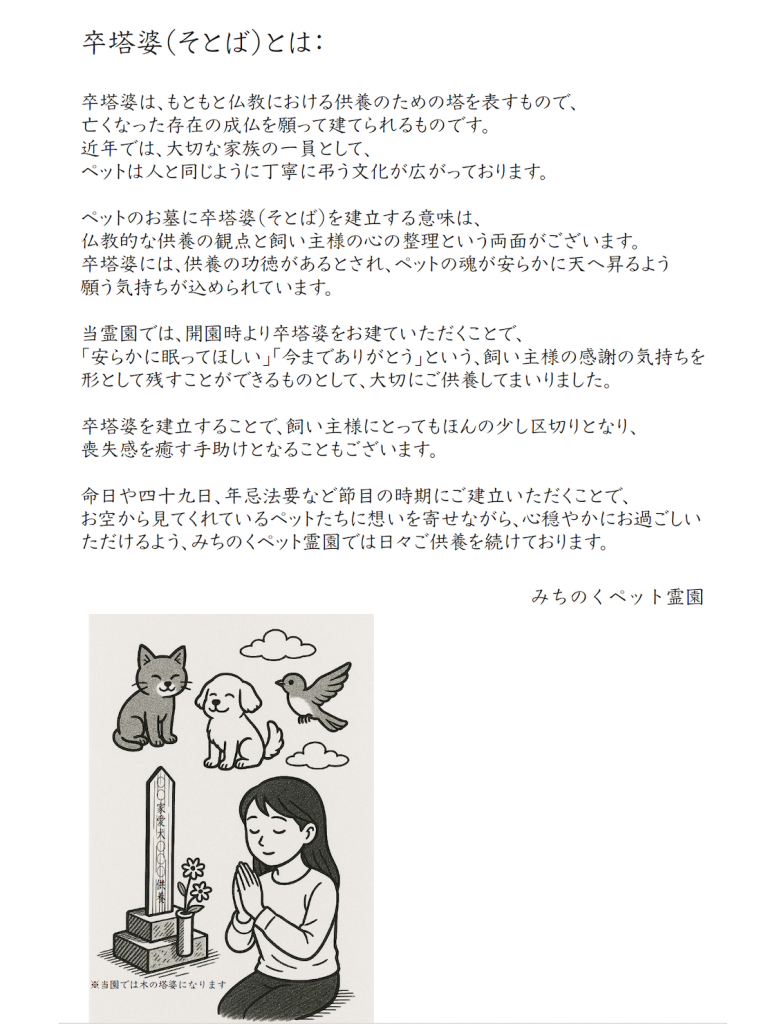 卒塔婆(そとば)とは:
卒塔婆は、もともと仏教における供養のための塔を表すもので、
亡くなった存在の成仏を願って建てられるものです。
近年では、大切な家族の一員として、
ペットは人と同じように丁寧に弔う文化が広がっております。
ペットのお墓に卒塔婆(そとば)を建立する意味は、
仏教的な供養の観点と飼い主様の心の整理という両面がございます。
卒塔婆には、供養の功徳があるとされ、ペットの魂が安らかに天へ昇るよう
願う気持ちが込められています。
当霊園では、開園時より卒塔婆をお建ていただくことで、
「安らかに眠ってほしい」「今までありがとう」という、飼い主様の感謝の気持ちを
形として残すことができるものとして、大切にご供養してまいりました。
卒塔婆を建立することで、飼い主様にとってもほんの少し区切りとなり、
喪失感を癒す手助けとなることもございます。
命日や四十九日、年忌法要など節目の時期にご建立いただくことで、
お空から見てくれているペットたちに想いを寄せながら、心穏やかにお過ごしい
ただけるよう、みちのくペット霊園では日々ご供養を続けております。
みちのくペット霊園
〇〇家愛犬〇〇〇供養
※当園では木の塔婆になります